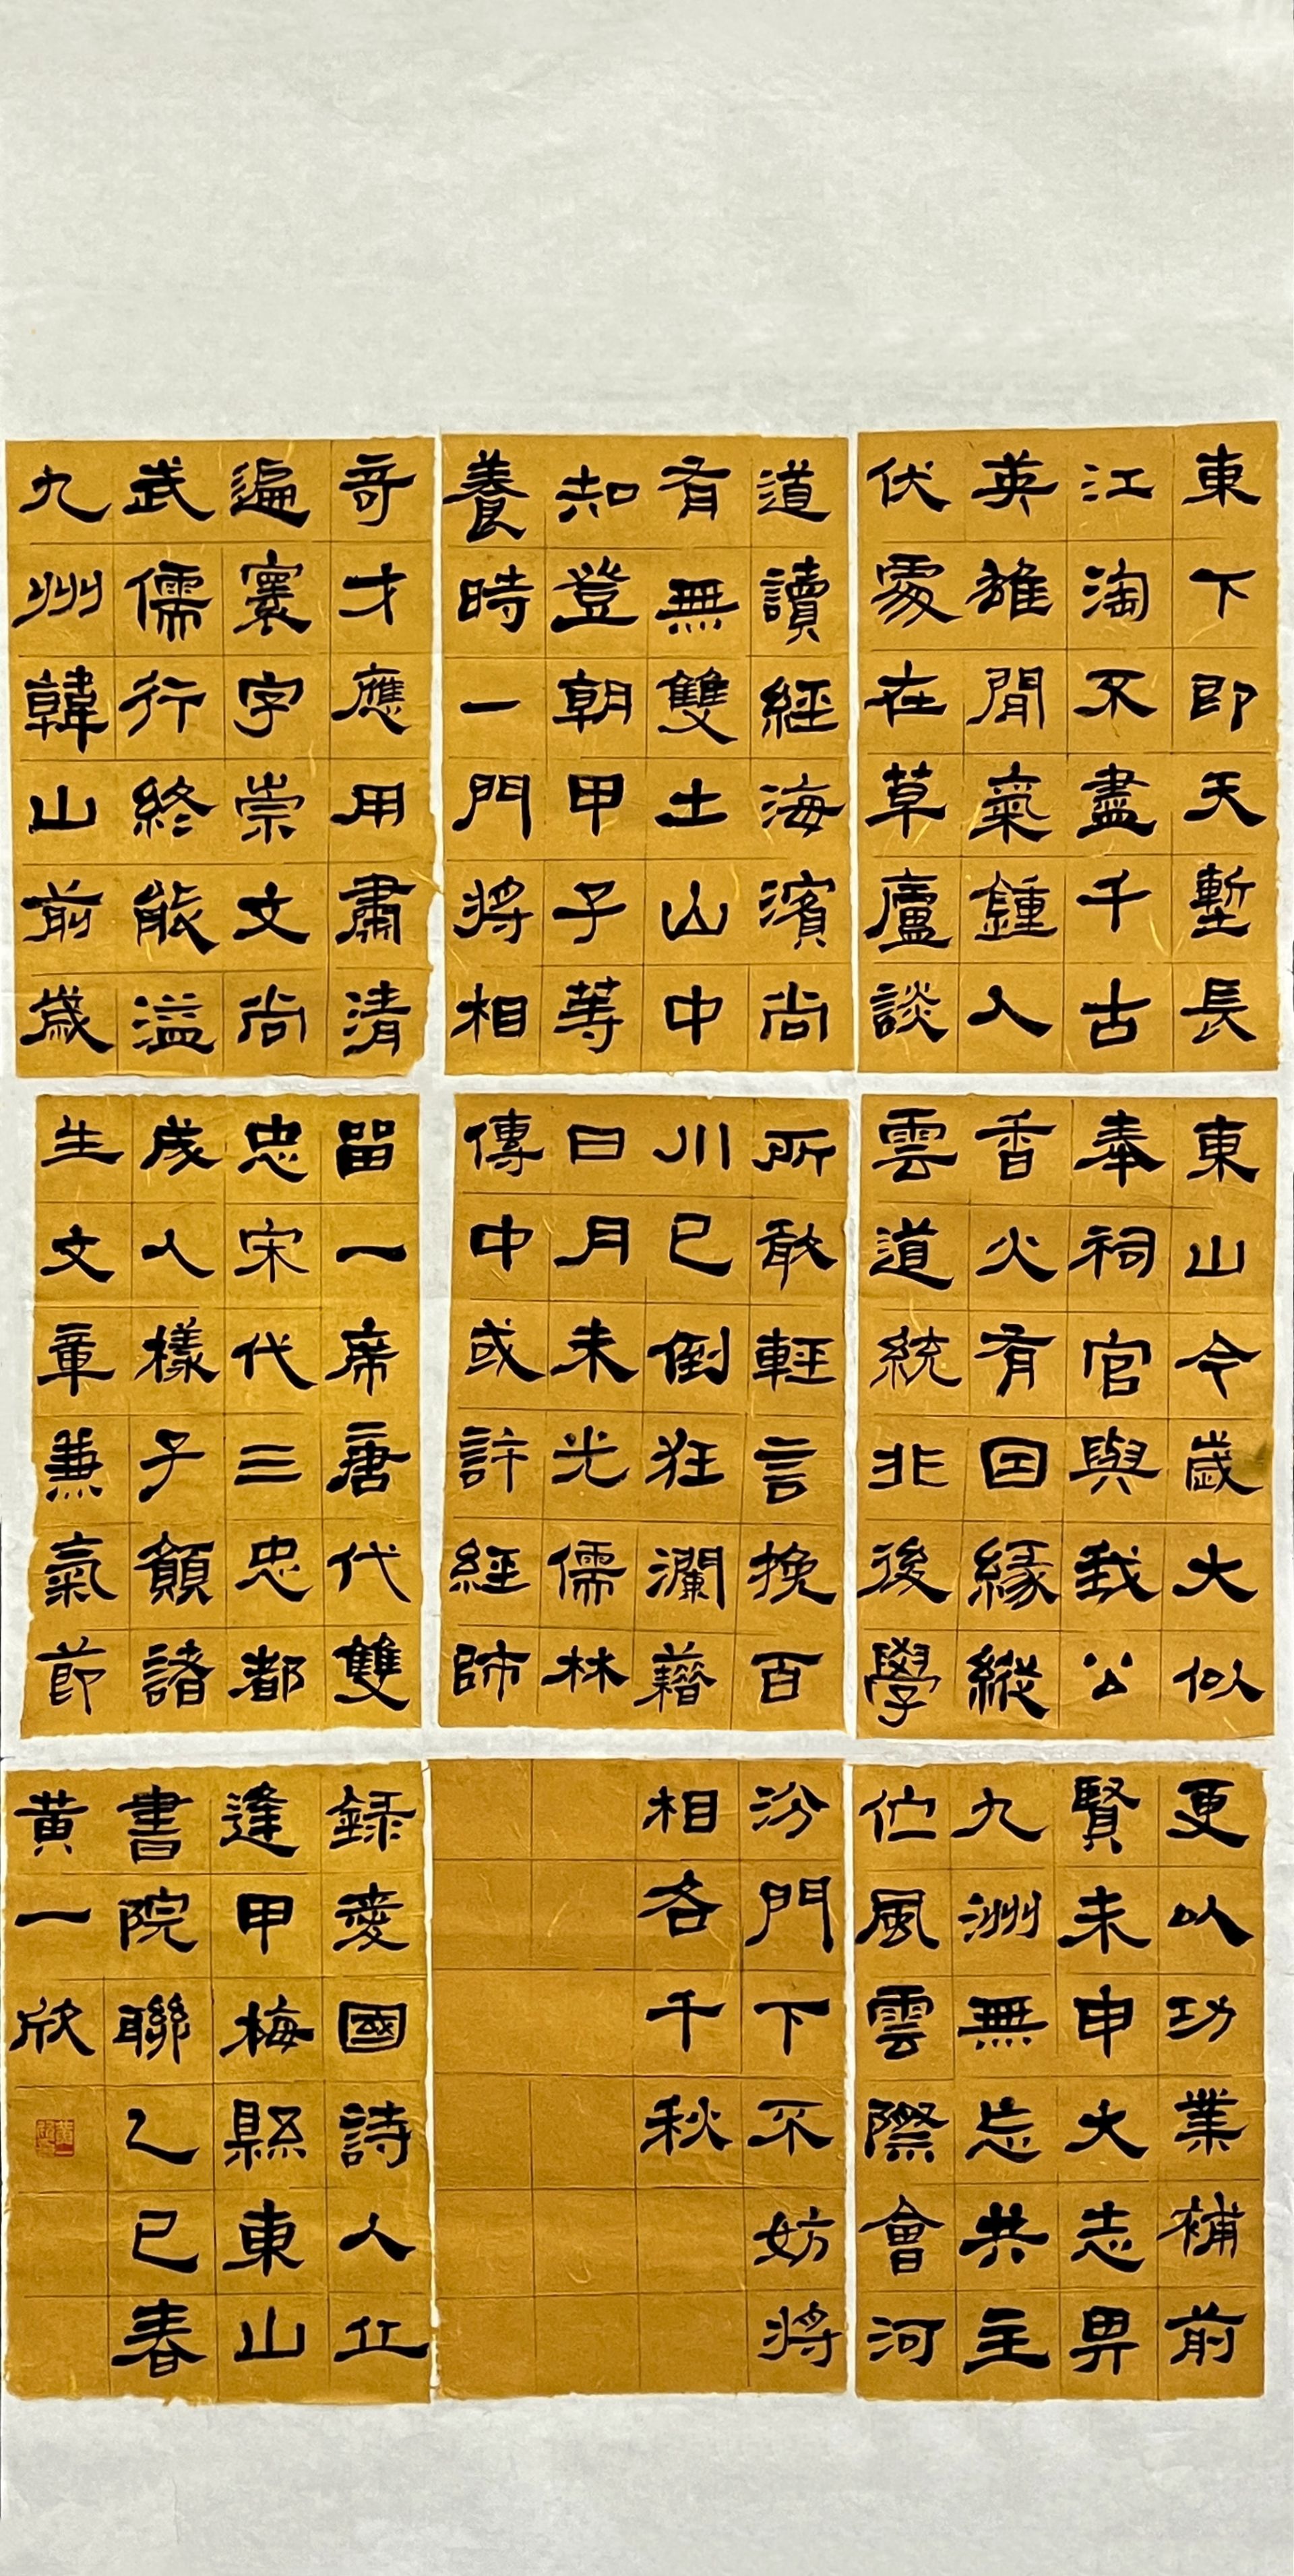 東下即天塹長
江淘不盡千古
英雄間氣鍾人
伏處在草廬談
道讀經海濱尚
有無雙士山中
知登朝甲子等
養時一門將相
奇才應用肅清
遍寰宇崇文尚
武儒行終能溢
九州韓山前歲
東山今歲大似
奉祠官與我公
香火有因緣縱
雲道統非後學
所敢輕言挽百
川已倒狂瀾藉
日月未光儒林
傳中或許經師
留一席唐代雙
忠宋代三忠都
成人樣子願諸
生文章兼氣節
更以功業補前
賢未申大志畀
九洲無忘共主
伫風雲際會河
汾門下不妨將
相各千秋
録愛國詩人丘
逢甲梅縣東山
書院聯乙巳春
黄一欣